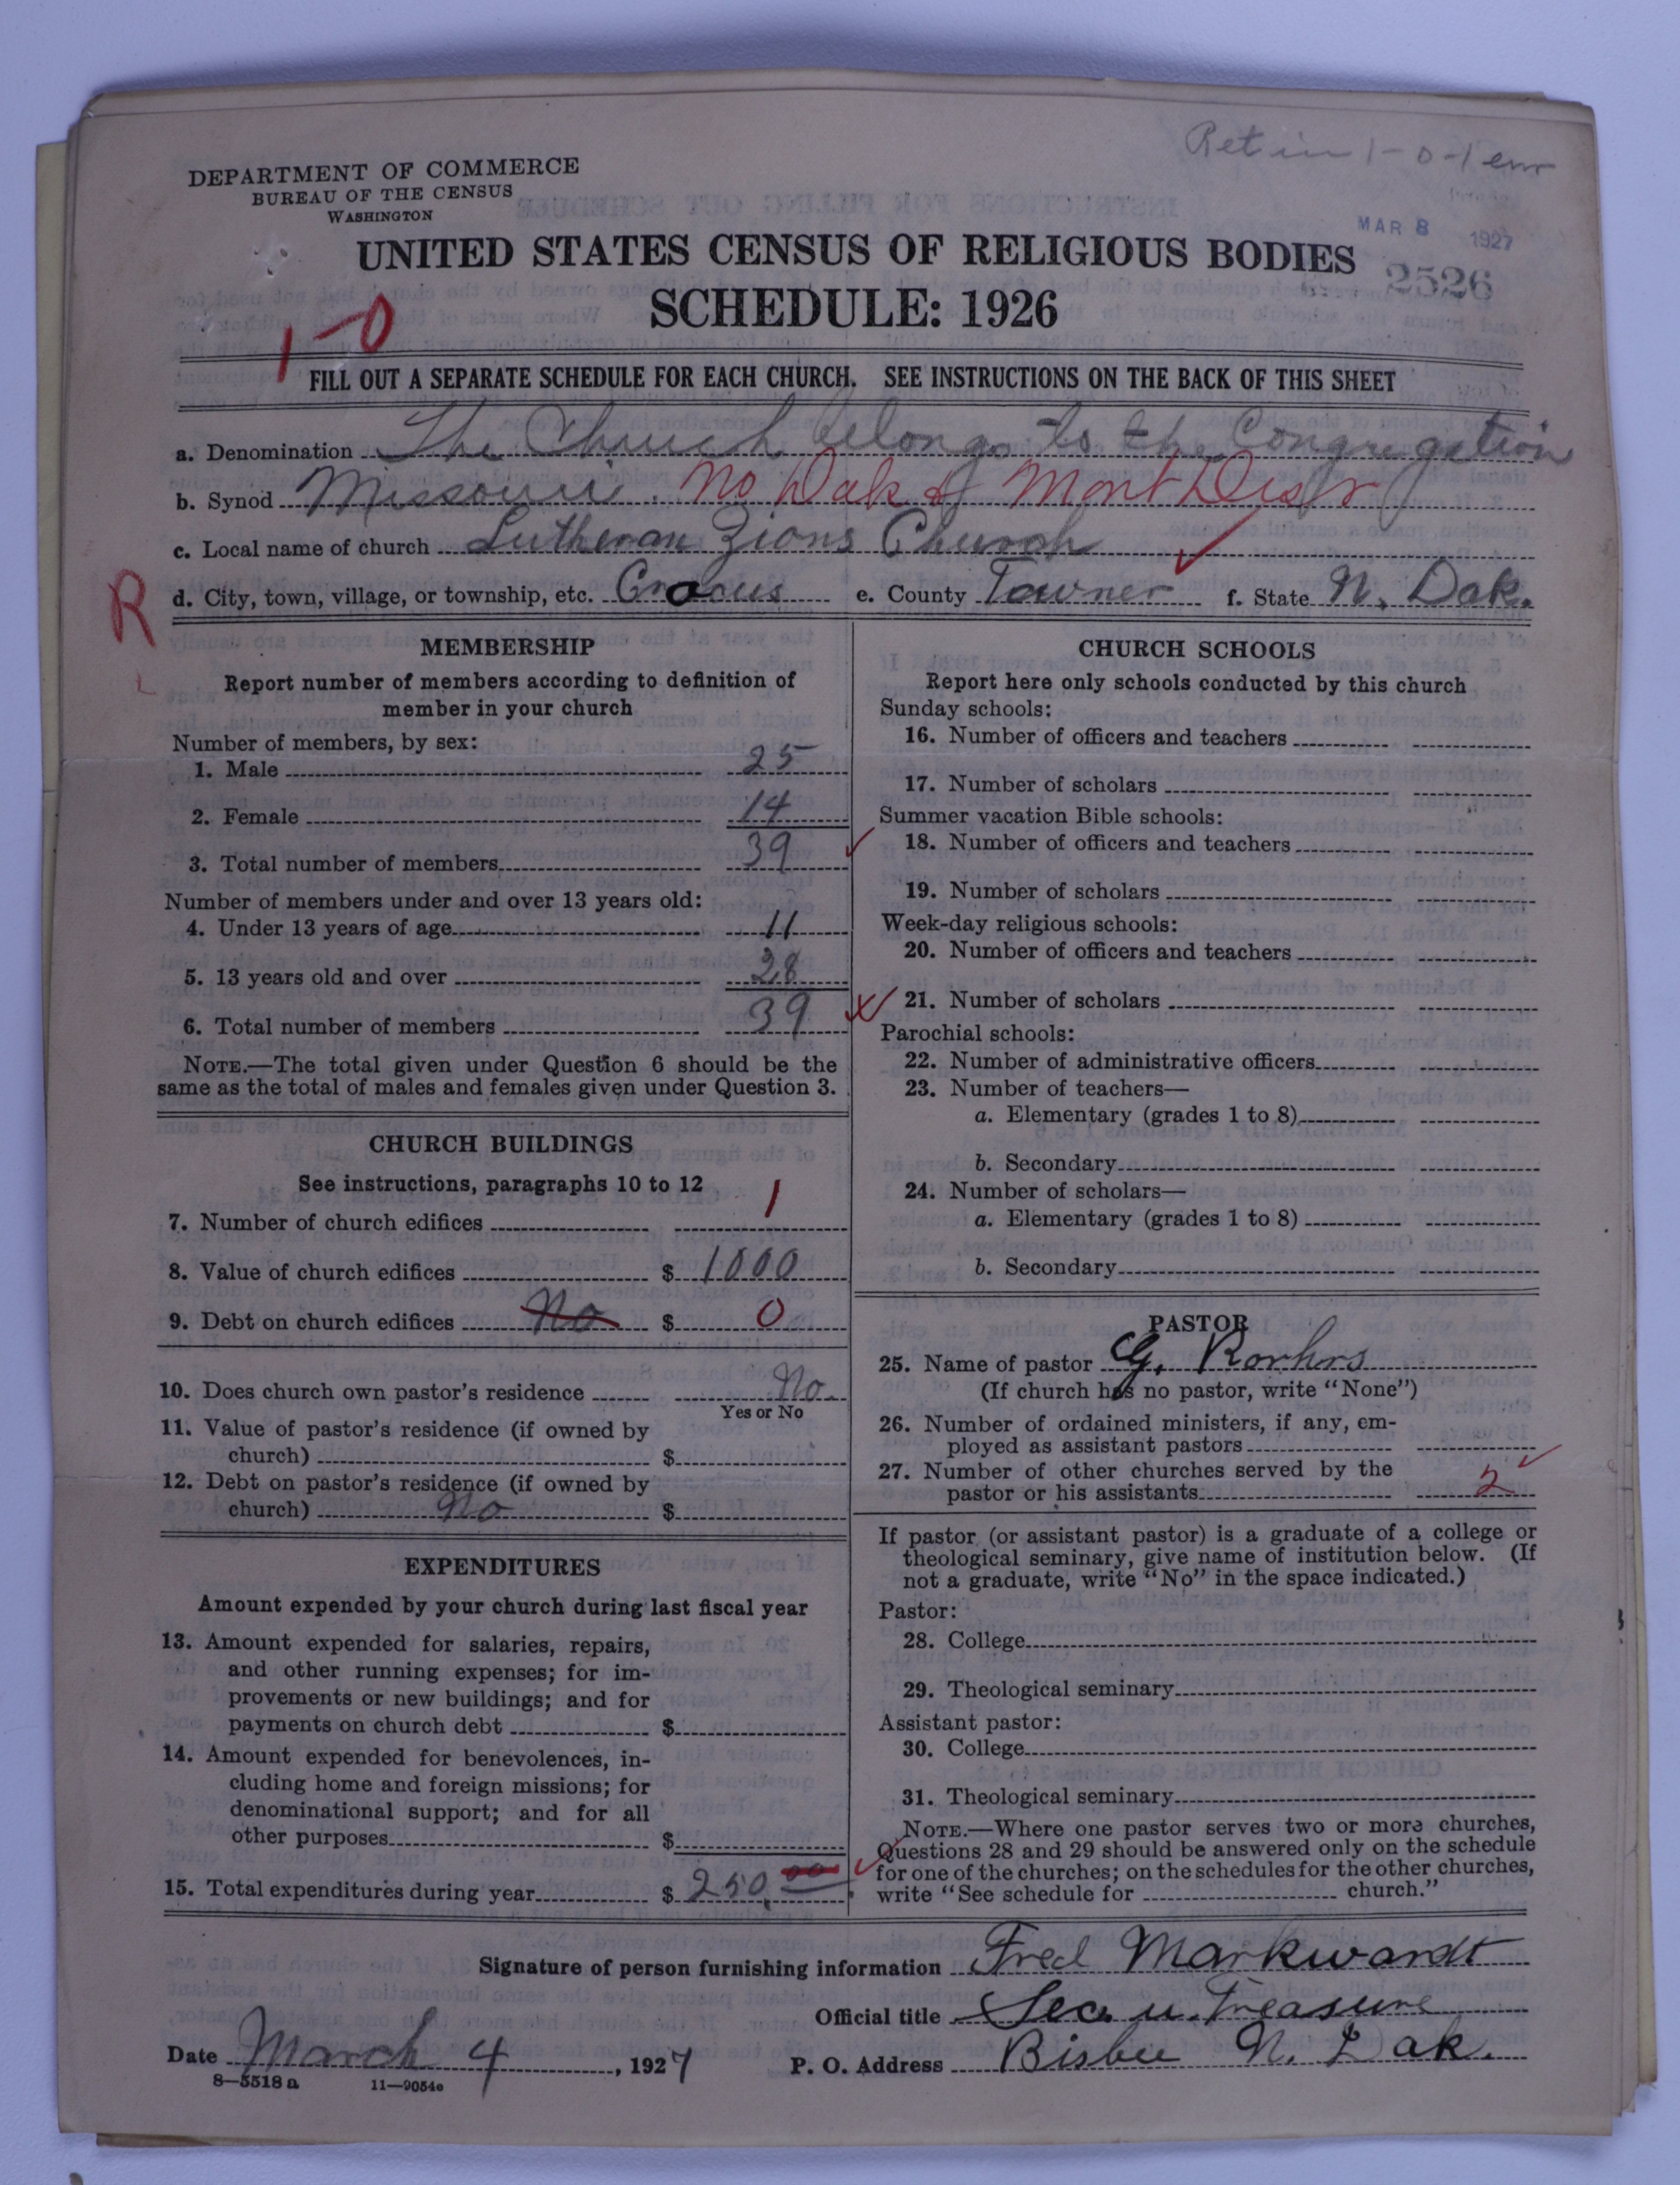 Ret in 1-0-1 enr
DEPARTMENT OF COMMERCE
BUREAU OF THE CENSUS
WASHINGTON
MAR 8 1927
2526
UNITED STATES CENSUS OF RELIGIOUS BODIES
SCHEDULE: 1926
1-0
FILL OUT A SEPARATE SCHEDULE FOR EACH CHURCH. SEE INSTRUCTIONS ON THE BACK OF THIS SHEET
a. Denomination The Church belongs to the Congregation
b. Synod Missouri. No Dak & Mont Distr
c. Local name of church Lutheran Zions Church
R
d. City, town, village, or township, etc. Crocus e. County Towner f. State N. Dak.
MEMBERSHIP
Report number of members according to definition of
member in your church
Number of members, by sex:
1. Male 25
2. Female 14
3. Total number of members 39
Number of members under and over 13 years old:
4. Under 13 years of age 11
5. 13 years old and over 28
6. Total number of members 39
NOTE.—The total given under Question 6 should be the
same as the total of males and females given under Question 3.
CHURCH BUILDINGS
See instructions, paragraphs 10 to 12
7. Number of church edifices 1
8. Value of church edifices $ 1000
9. Debt on church edifices No $ 0
10. Does church own pastor's residence No.
Yes or No
11. Value of pastor's residence (if owned by
church) $
12. Debt on pastor's residence (if owned by
church) No $
EXPENDITURES
Amount expended by your church during last fiscal year
13. Amount expended for salaries, repairs,
and other running expenses; for im-
provements or new buildings; and for
payments on church debt $
14. Amount expended for benevolences, in-
cluding home and foreign missions; for
denominational support; and for all
other purposes $
15. Total expenditures during year $ 250.00
CHURCH SCHOOLS
Report here only schools conducted by this church
Sunday schools:
16. Number of officers and teachers
17. Number of scholars
Summer vacation Bible schools:
18. Number of officers and teachers
19. Number of scholars
Week-day religious schools:
20. Number of officers and teachers
21. Number of scholars
Parochial schools:
22. Number of administrative officers
23. Number of teachers—
a. Elementary (grades 1 to 8)
b. Secondary
24. Number of scholars—
a. Elementary (grades 1 to 8)
b. Secondary
PASTOR
25. Name of pastor G. Rorhrs
(If church has no pastor, write "None")
26. Number of ordained ministers, if any, em-
ployed as assistant pastors
27. Number of other churches served by the
pastor or his assistants 2
If pastor (or assistant pastor) is a graduate of a college or
theological seminary, give name of institution below. (If
not a graduate, write "No" in the space indicated.)
Pastor:
28. College
29. Theological seminary
Assistant pastor:
30. College
31. Theological seminary
NOTE.—Where one pastor serves two or more churches,
Questions 28 and 29 should be answered only on the schedule
for one of the churches; on the schedules for the other churches,
write "See schedule for church."
Signature of person furnishing information Fred Markwardt
Official title Sec. u. Treasure
Date March 4, 1927 P. O. Address Bisbee N. Dak.
8—5518 a 11—9054c